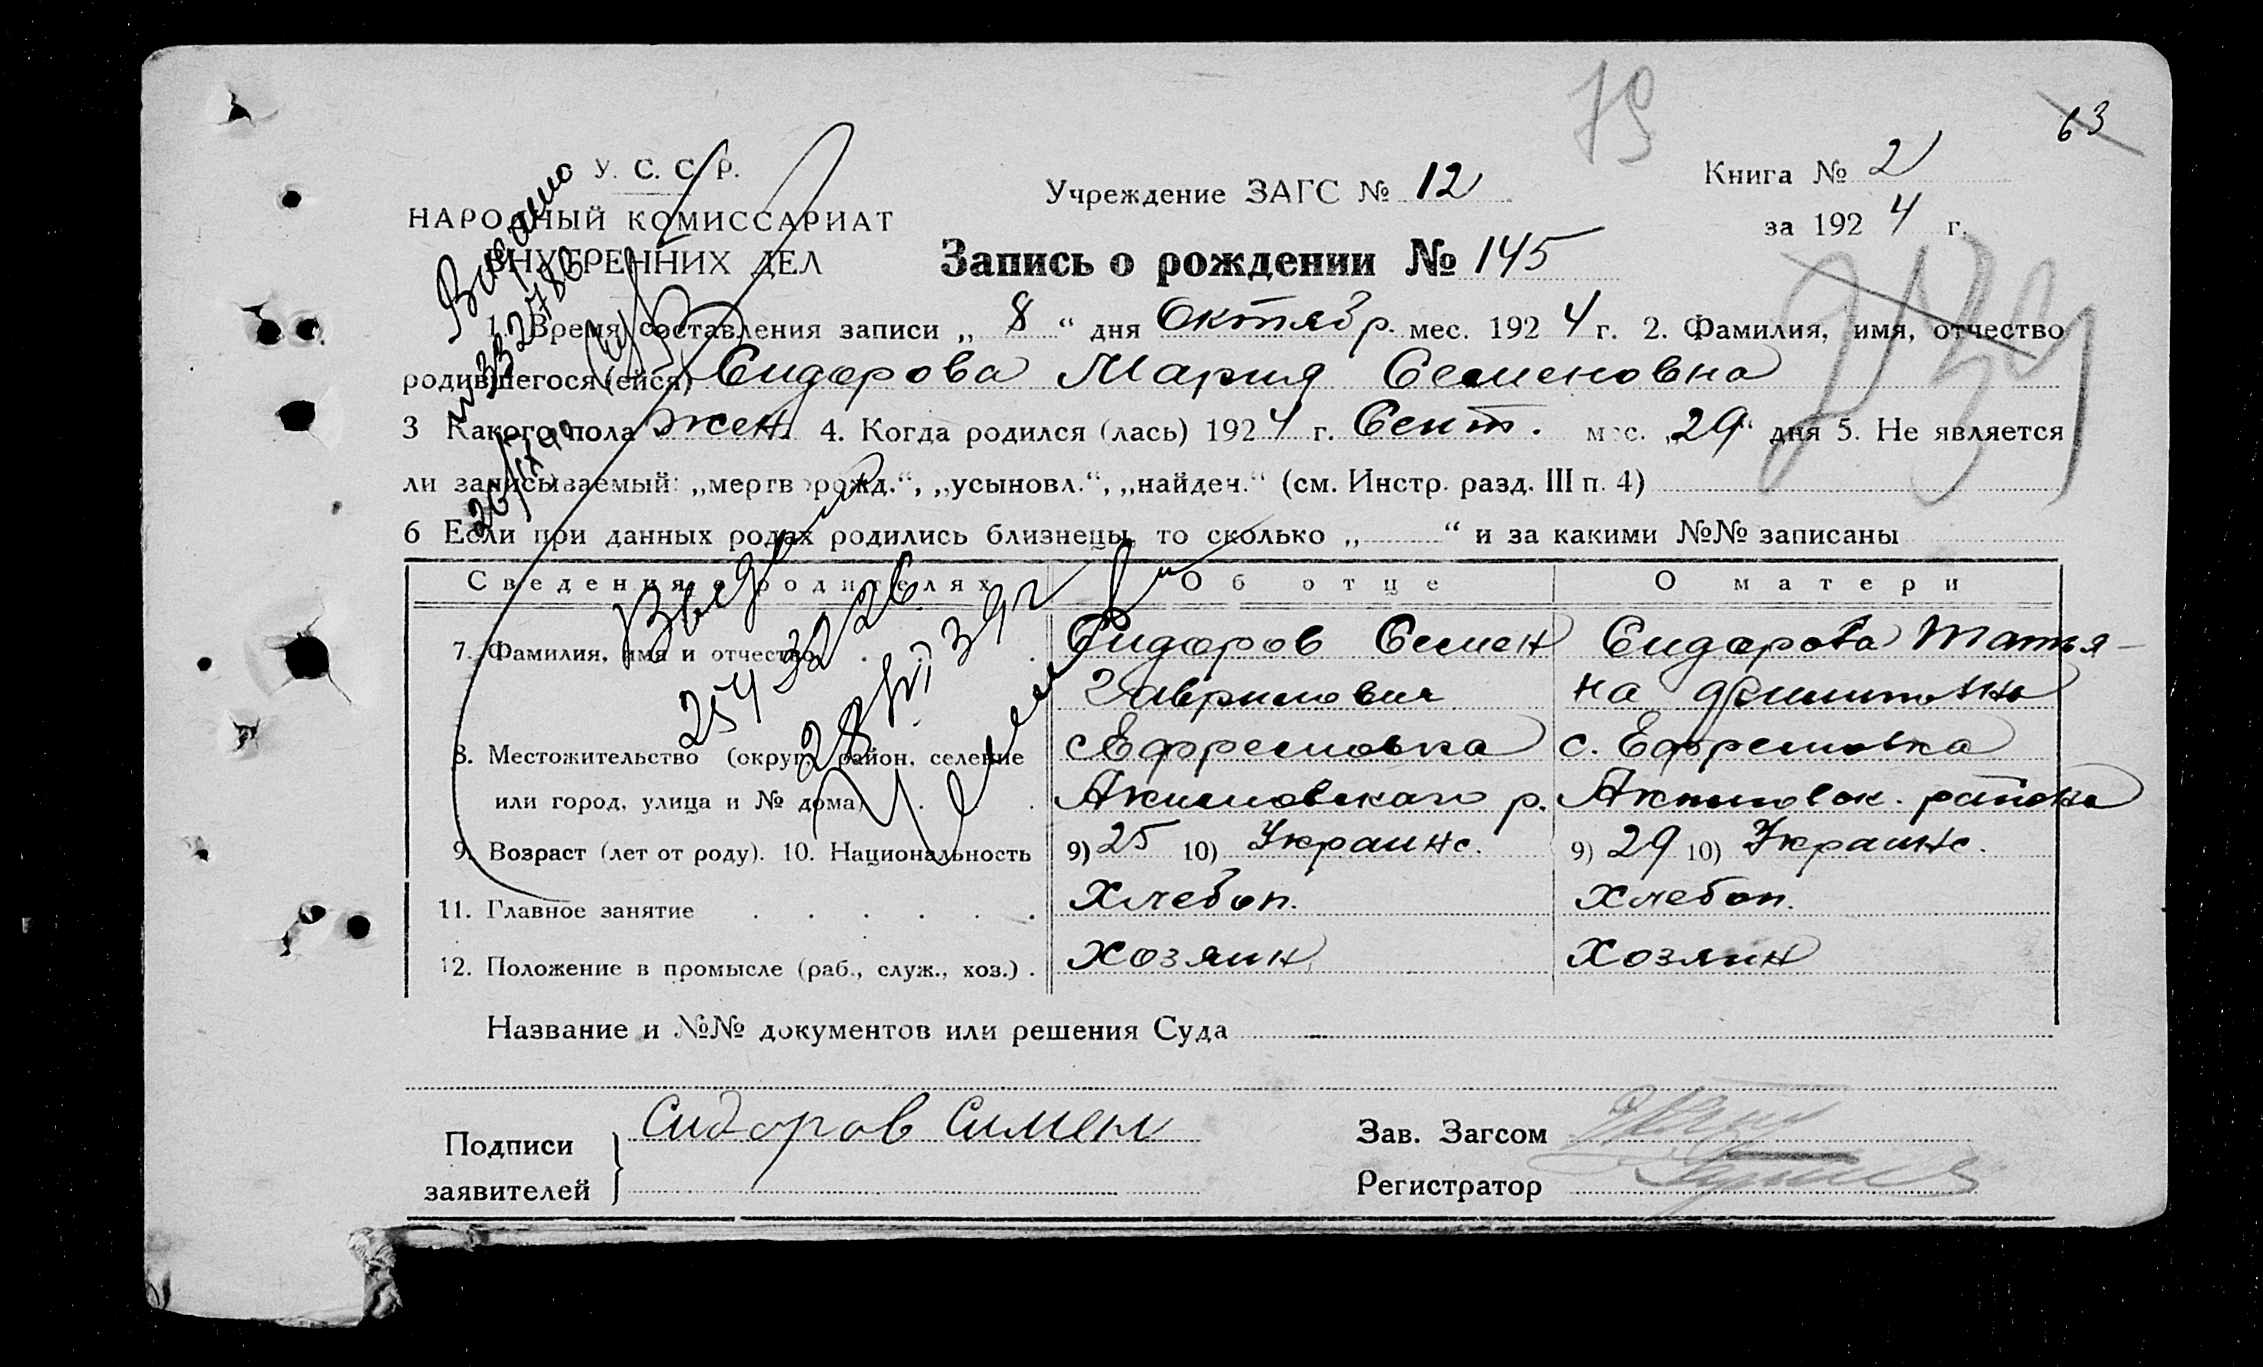 79
63
У. С. С. Р.
НАРОДНЫЙ КОМИССАРИАТ
ВНУТРЕННИХ ДЕЛ
Учреждение ЗАГС № 12
Книга № 2
за 1924 г.
Запись о рождении № 145
1. Время составления записи „ 8 “ дня Октябр. мес. 1924 г. 2. Фамилия, имя, отчество
родившегося (ейся) Сидорова Мария Семеновна
3 Какого пола жен. 4. Когда родился (лась) 1924 г. Сент. мес. „29“ дня 5. Не является
ли записываемый: „мертворожд.“, „усыновл.“, „найден.“ (см. Инстр. разд. III п. 4)
6 Если при данных родах родились близнецы, то сколько „ “ и за какими №№ записаны
Сведения о родителях Об отце О матери
7. Фамилия, имя и отчество Сидоров Семен Сидорова Татья-
Гаврилович на
8. Местожительство (округ, район, селение с Ефремовка с. Ефремовка
или город, улица и № дома) Акимовскаго р. Акимовск. района
9. Возраст (лет от роду). 10. Национальность 9) 25 10) Украинс. 9) 29 10) Украинс.
11. Главное занятие Хлебоп. Хлебоп.
12. Положение в промысле (раб., служ., хоз.) Хозяин Хозяин
Название и №№ документов или решения Суда
Подписи
заявителей
Сидоров Симен
Зав. Загсом
Регистратор